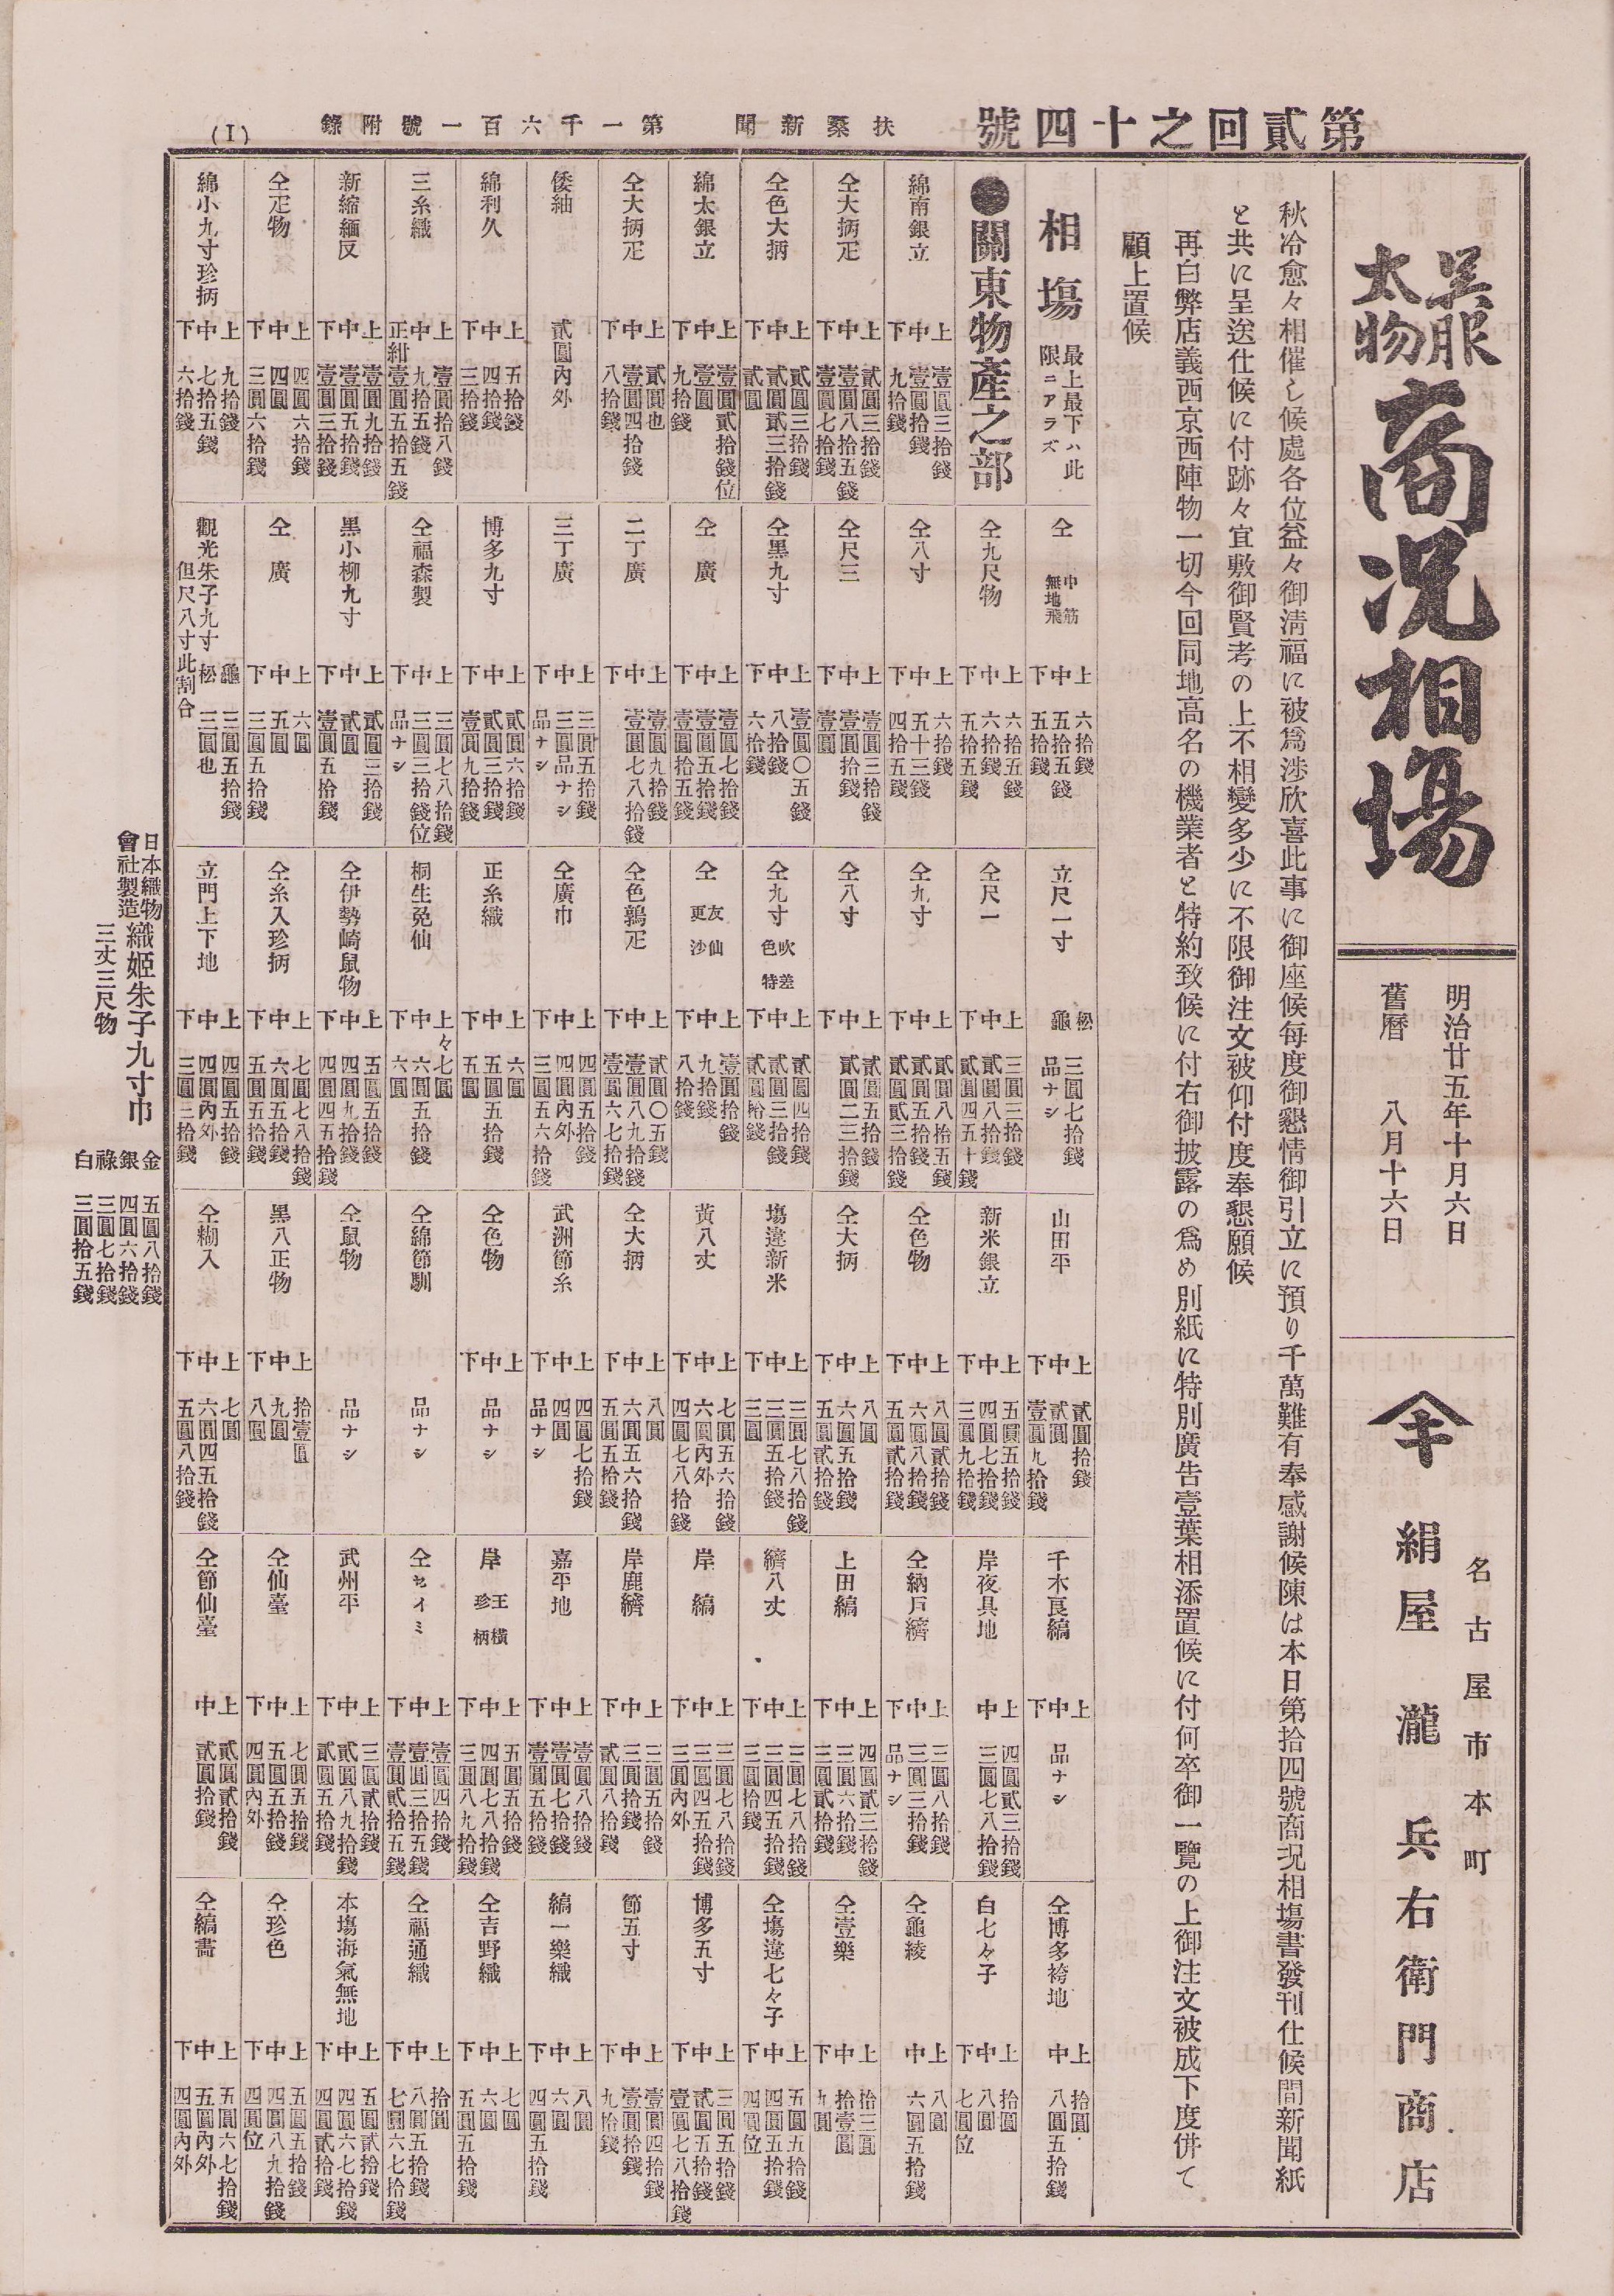 第貳回之十四號
扶桑新聞　第一千六百一號附錄
(I)
呉服
太物
商况相塲
明治廿五年十月六日
舊曆　八月十六日
名古屋市本町
絹屋　瀧　兵右衛門商店
秋冷愈々相催し候處各位益々御淸福に被爲渉欣喜此事に御座候每度御懇情御引立に預り千萬難有奉感謝候陳は本日第拾四號商况相塲書發刊仕候間新聞紙
と共に呈送仕候に付跡々宜敷御賢考の上不相變多少に不限御注文被仰付度奉懇願候
再白弊店義西京西陣物一切今回同地高名の機業者と特約致候に付右御披露の爲め別紙に特別廣告壹葉相添置候に付何卒御一覽の上御注文被成下度併て
願上置候
相塲　最上最下ハ此
限ニアラズ
●關東物產之部
綿南銀立
上　壹圓三拾錢
中　壹圓拾錢
下　九拾錢
仝大柄疋
上　貳圓三拾錢
中　壹圓八拾五錢
下　壹圓七拾錢
仝色大柄
上　貳圓三拾錢
中　貳圓貳三拾錢
下　貳圓
綿太銀立
上　壹圓貳拾錢位
中　壹圓
下　九拾錢
仝大柄疋
上　貳圓也
中　壹圓四拾錢
下　八拾錢
倭紬
貳圓內外
綿利久
上　五拾錢
中　四拾錢
下　三拾錢
三糸織
上　壹圓拾八錢
中　九拾五錢
正紺　壹圓五拾五錢
新縮緬反
上　壹圓九拾錢
中　壹圓五拾錢
下　壹圓三拾錢
仝疋物
上　四圓六拾錢
中　四圓
下　三圓六拾錢
綿小九寸珍柄
上　九拾錢
中　七拾五錢
下　六拾錢
仝　中筋
無地飛
上　六拾錢
中　五拾五錢
下　五拾錢
仝九尺物
上　六拾五錢
中　六拾錢
下　五拾五錢
仝八寸
上　六拾錢
中　五十三錢
下　四拾五錢
仝尺三
上　壹圓三拾錢
中　壹圓拾錢
下　壹圓
仝黑九寸
上　壹圓〇五錢
中　八拾錢
下　六拾錢
仝　廣
上　壹圓七拾錢
中　壹圓五拾錢
下　壹圓拾五錢
二丁廣
上　壹圓九拾錢
中　壹圓七八拾錢
下
三丁廣
上　三圓五拾錢
中　三圓品ナシ
下　品ナシ
博多九寸
上　貳圓六拾錢
中　貳圓三拾錢
下　壹圓九拾錢
仝福森製
上　三圓七八拾錢
中　三圓三拾錢位
下　品ナシ
黑小柳九寸
上　貳圓三拾錢
中　貳圓
下　壹圓五拾錢
仝　廣
上　六圓
中　五圓
下　三圓五拾錢
觀光朱子九寸
龜　三圓五拾錢
松　三圓也
但尺八寸此割合
立尺一寸
松　三圓七拾錢
龜　品ナシ
仝尺一
上　三圓三拾錢
中　貳圓八拾錢
下　貳圓四五十錢
仝九寸
上　貳圓八拾五錢
中　貳圓五拾錢
下　貳圓貳三拾錢
仝八寸
上　貳圓五拾錢
中　貳圓二三拾錢
下
仝九寸　吹差
色特
上　貳圓四拾錢
中　貳圓三拾錢
下　貳圓拾錢
仝　友仙
更沙
上　壹圓拾錢
中　九拾錢
下　八拾錢
仝色鶉疋
上　貳圓〇五錢
中　壹圓八九拾錢
下　壹圓六七拾錢
仝廣巾
上　四圓五拾錢
中　四圓內外
下　三圓五六拾錢
正糸織
上　六圓
中　五圓五拾錢
下　五圓
桐生兔仙
上々　七圓
中　六圓五拾錢
下　六圓
仝伊勢崎鼠物
上　五圓五拾錢
中　四圓九拾錢
下　四圓四五拾錢
仝糸入珍柄
上　七圓七八拾錢
中　六圓五拾錢
下　五圓五拾錢
立門上下地
上　四圓五拾錢
中　四圓內外
下　三圓三拾錢
山田平
上　貳圓拾錢
中　貳圓
下　壹圓九拾錢
新米銀立
上　五圓五拾錢
中　四圓七拾錢
下　三圓九拾錢
仝色物
上　八圓貳拾錢
中　六圓八拾錢
下　五圓貳拾錢
仝大柄
上　八圓
中　六圓五拾錢
下　五圓貳拾錢
塲違新米
上　三圓七八拾錢
中　三圓五拾錢
下　三圓
黃八丈
上　七圓五六拾錢
中　六圓內外
下　四圓七八拾錢
仝大柄
上　八圓
中　六圓五六拾錢
下　五圓五拾錢
武洲節糸
上　四圓七拾錢
中　四圓
下　品ナシ
仝色物
上中下　品ナシ
仝綿節馴
品ナシ
仝鼠物
品ナシ
黑八正物
上　拾壹圓
中　九圓
下　八圓
仝糊入
上　七圓
中　六圓四五拾錢
下　五圓八拾錢
千木良縞
上中下　品ナシ
岸夜具地
上　四圓貳三拾錢
中　三圓七八拾錢
仝納戶縞
上　三圓八拾錢
中　三圓三拾錢
下　品ナシ
上田縞
上　四圓貳三拾錢
中　三圓六拾錢
下　三圓貳拾錢
縞八丈
上　三圓七八拾錢
中　三圓四五拾錢
下　三圓拾錢
岸　縞
上　三圓七八拾錢
中　三圓四五拾錢
下　三圓內外
岸鹿縞
上　三圓五拾錢
中　三圓拾錢
下　貳圓八拾錢
嘉平地
上　壹圓八拾錢
中　壹圓七拾錢
下　壹圓五拾錢
岸　王橫
珍柄
上　五圓五拾錢
中　四圓七八拾錢
下　三圓八九拾錢
仝セイミ
上　壹圓四拾錢
中　壹圓三拾五錢
下　壹圓貳拾五錢
武州平
上　三圓貳拾錢
中　貳圓八九拾錢
下　貳圓五拾錢
仝仙臺
上　七圓五拾錢
中　五圓五拾錢
下　四圓內外
仝節仙臺
上　貳圓貳拾錢
中　貳圓拾錢
仝博多袴地
上　拾圓
中　八圓五拾錢
白七々子
上　拾圓
中　八圓
下　七圓位
仝龜綾
上　八圓
中　六圓五拾錢
仝壹樂
上　拾三圓
中　拾壹圓
下　九圓
仝塲違七々子
上　五圓五拾錢
中　四圓五拾錢
下　四圓位
博多五寸
上　三圓五拾錢
中　貳圓五拾錢
下　壹圓七八拾錢
節五寸
上　壹圓四拾錢
中　壹圓拾錢
下　九拾錢
縞一樂織
上　八圓
中　六圓
下　四圓五拾錢
仝吉野織
上　七圓
中　六圓
下　五圓五拾錢
仝福通織
上　拾圓
中　八圓五拾錢
下　七圓六七拾錢
本塲海氣無地
上　五圓貳拾錢
中　四圓六七拾錢
下　四圓貳拾錢
仝珍色
上　五圓五拾錢
中　四圓八九拾錢
下　四圓位
仝縞書
上　五圓六七拾錢
中　五圓內外
下　四圓內外
日本織物
會社製造
織姬朱子九寸巾
三丈三尺物
金　五圓八拾錢
銀　四圓六拾錢
祿　三圓七拾錢
白　三圓拾五錢